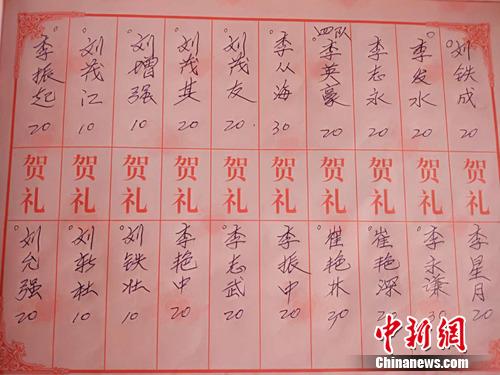 李振起 20
刘茂江 10
刘增强 10
刘茂其 20
刘茂友 20.
李从海 30
四队 李英豪 20
李志永 20
李发水 20
刘铁成 20
贺礼 贺礼 贺礼 贺礼 贺礼 贺礼 贺礼 贺礼 贺礼 贺礼
刘允强 20
刘新壮 10
刘铁壮 10
李艳中 20
李志武 20
李振中 20
崔艳林 30
崔艳深
李永濂 30
李星月 20
中新网
Chinanews.com